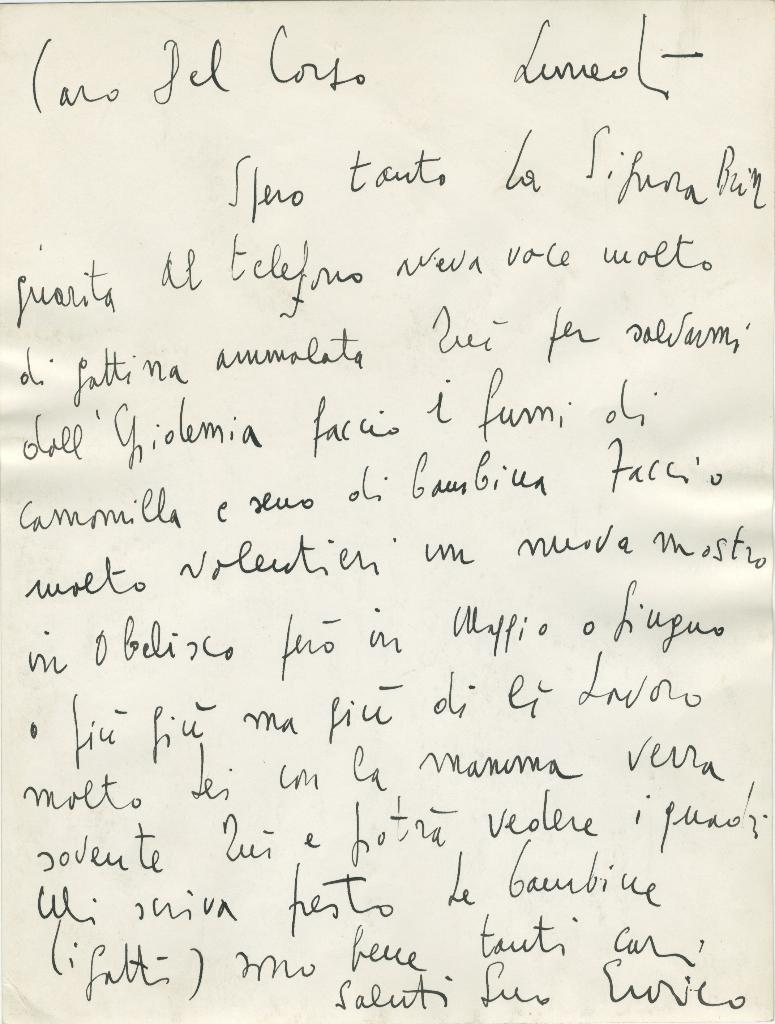 Caro Del Corso Lunedì
Spero tanto La Signora Brin
guarita Al telefono aveva voce molto
di gattina ammalata Qui per salvarmi
dall'Epidemia faccio i fumi di
camomilla e seno di bambina Faccio
molto volentieri un nuova mostra
in Obelisco però in Maggio o Giugno
o più giù ma più di lì Lavoro
molto Lei con la mamma verrà
sovente Qui e potrà vedere i quadri
Mi scriva presto Le bambine
(i gatti) sono bene tanti cari
saluti Suo Enrico